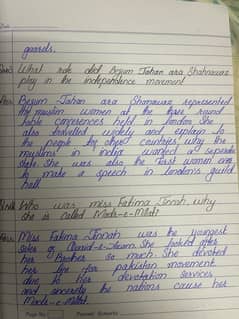 guards.
What role did Begum Jahan ara Shahnawaz
play in the independence movement
Ans: Begum Jahan ara Shahnawaz represented
the muslim women at the three round
table conferences held in london. She
also travelled widely and explain to
the people for other countries why the
muslims in India wanted a seperate
state. She was also the first women ever
to make a speech in london's guild
hall.
Who was miss Fatima Jinnah. why
she is called Madr-e-Millat?
Ans: Miss Fatima Jinnah was the youngest
sister of Quaid-e-Azam. She looked after
her Brother so much. She devoted
her life for pakistan movement.
due to her devotation services
and sincerity the nations cause her
Madr-e-Millat.
Page No.